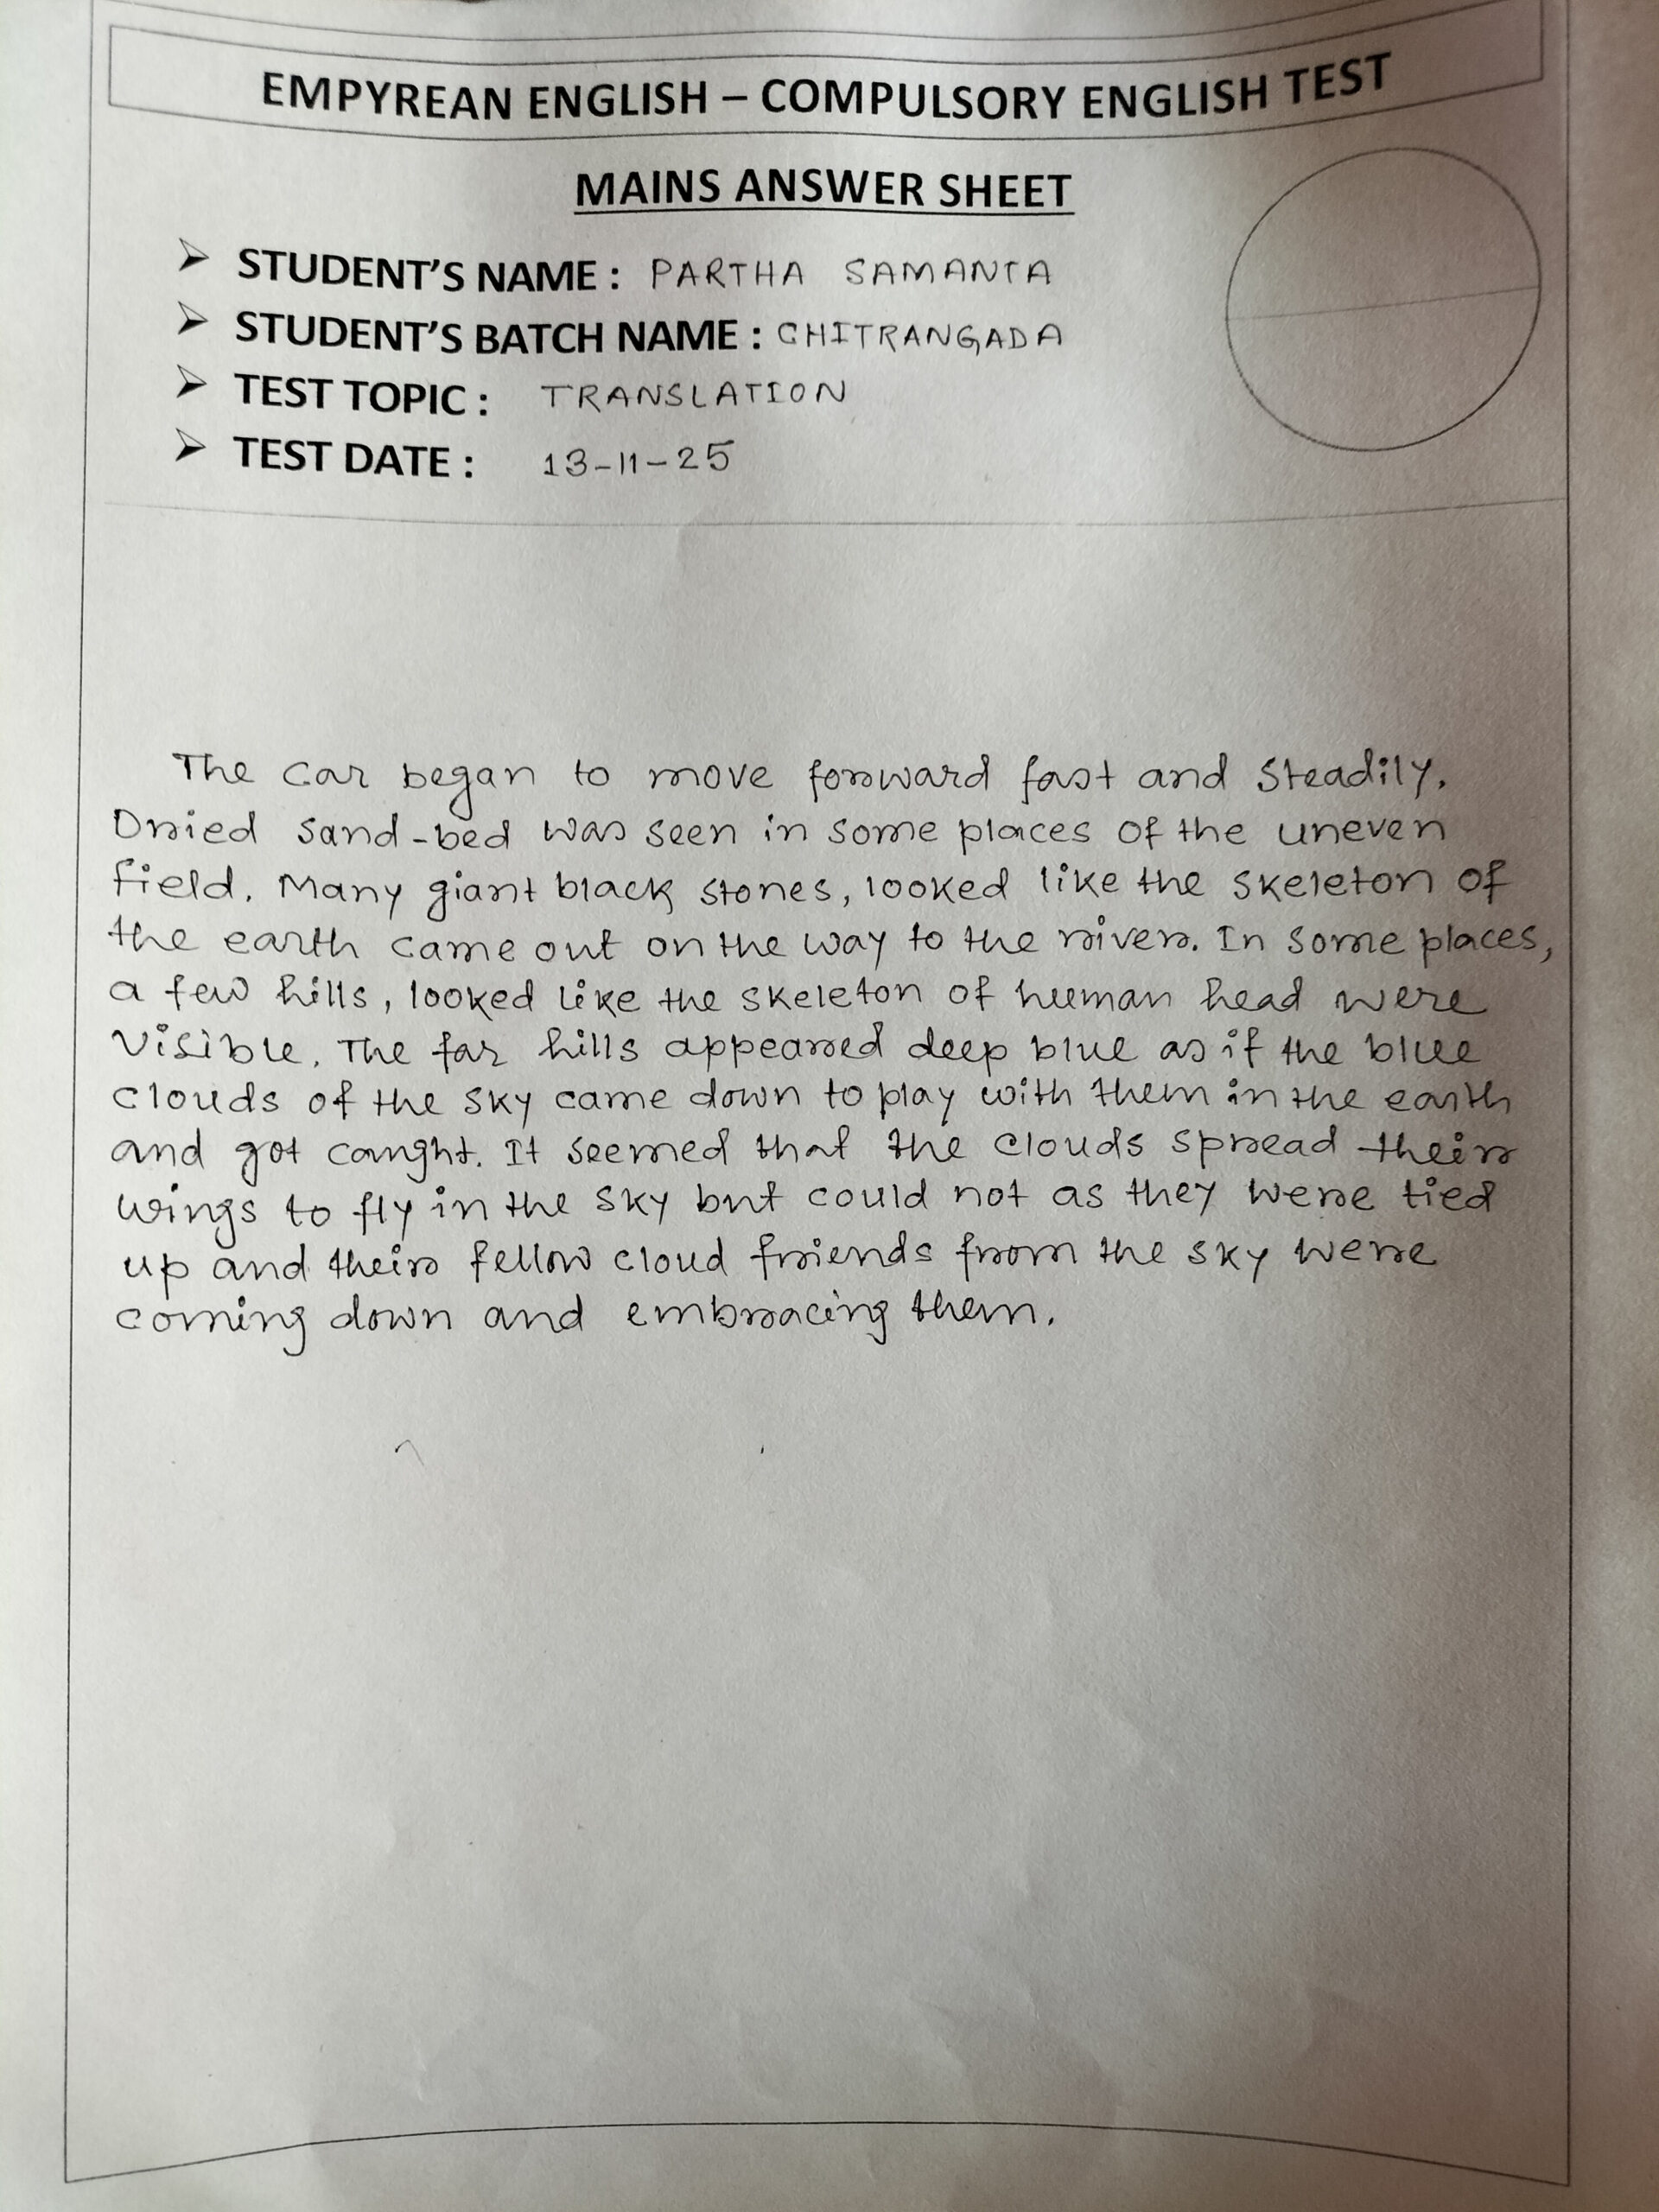 EMPYREAN ENGLISH – COMPULSORY ENGLISH TEST
MAINS ANSWER SHEET
➢ STUDENT'S NAME : PARTHA SAMANTA
➢ STUDENT'S BATCH NAME : CHITRANGADA
➢ TEST TOPIC : TRANSLATION
➢ TEST DATE : 13-11-25
The car began to move forward fast and steadily.
Dried sand-bed was seen in some places of the uneven
field. Many giant black stones, looked like the skeleton of
the earth came out on the way to the river. In some places,
a few hills, looked like the skeleton of human head were
visible. The far hills appeared deep blue as if the blue
clouds of the sky came down to play with them in the earth
and got caught. It seemed that the clouds spread their
wings to fly in the sky but could not as they were tied
up and their fellow cloud friends from the sky were
coming down and embracing them.